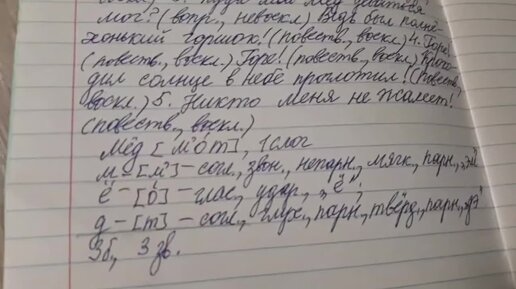 мог? (вопр., невоскл.) Ведь был полнё-
хонький горшок! (повеств., воскл.) 4. Горе!
(повеств., воскл.) Горе! (повеств., воскл.) Кроко-
дил солнце в небе проглотил! (повеств.,
воскл.) 5. Никто меня не жалеет!
(повеств., воскл.)
Мёд [м'о́т], 1 слог
м - [м'] - согл., звон., непарн., мягк., парн., „эм"
ё - [о́] - глас., удар., „ё".
д - [т] - согл., глух., парн., твёрд., парн., „дэ"
3б., 3 зв.